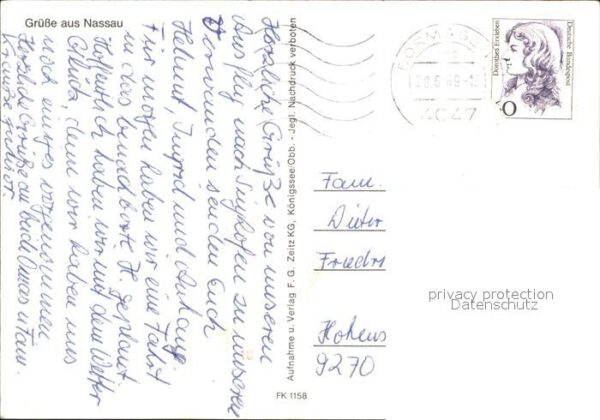 Grüße aus Nassau
Herzliche Grüße von unserem
Ausflug nach Singhofen zu unseren
Verwandten senden Euch
Helmut, Ingrid und Anhang
Für morgen haben wir eine Fahrt
in das benachbarte geplant
Hoffentlich haben wir mit dem Wetter
Glück, denn wir haben uns
noch einiges vorgenommen
Herzliche Grüße an beide Omas u. Fam.
Aufnahme u. Verlag F. G. Zeitz KG, Königssee/Obb. - Jegl. Nachdruck verboten
FK 1158
DORMAGEN
4047
Dorothea Erxleben
Deutsche Bundespost
Fam.
Dieter
Friedr
Hohens
9270
privacy protection
Datenschutz